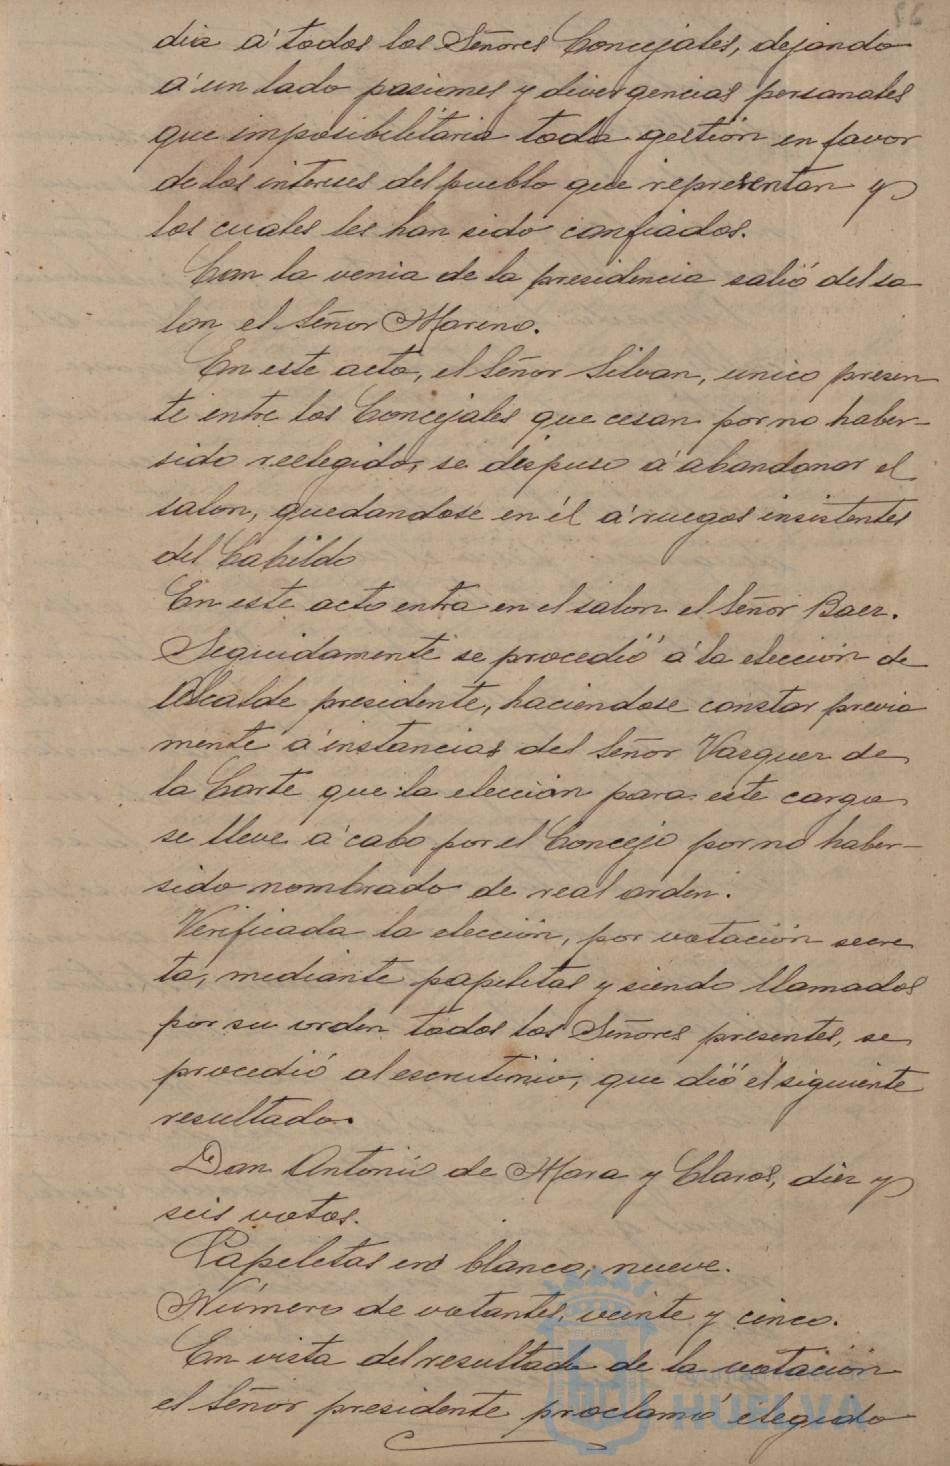 dia á todos los Señores Concejales, dejando
á un lado pasiones y divergencias personales
que imposibilitaria toda gestión en favor
de los intereses del pueblo que representan y
los cuales les han sido confiados.
Con la venia de la presidencia salió del sa
lon el Señor Moreno.
En este acto, el Señor Silvan, unico presen
te entre los Concejales que cesan por no haber-
sido reelegidos, se dispuso á abandonar el
salon, quedandose en él á ruegos insistentes
del Cabildo
En este acto entra en el salon el Señor Baez.
Seguidamente se procedió á la elección de
Alcalde presidente, haciendose constar previa
mente á instancias del Señor Vazquez de
la Corte que la elección para este cargo
se lleve á cabo por el Concejo por no haber-
sido nombrado de real orden.
Verificada la elección, por votación secre
ta, mediante papeletas y siendo llamados
por su orden todos los Señores presentes, se
procedió al escrutinio, que dió el siguiente
resultado.
Don Antonio de Mora y Claros, diez y
seis votos.
Papeletas en blanco, nueve.
Número de votantes, veinte y cinco.
En vista del resultado de la votación
el Señor presidente proclamó elegido
HUELVA